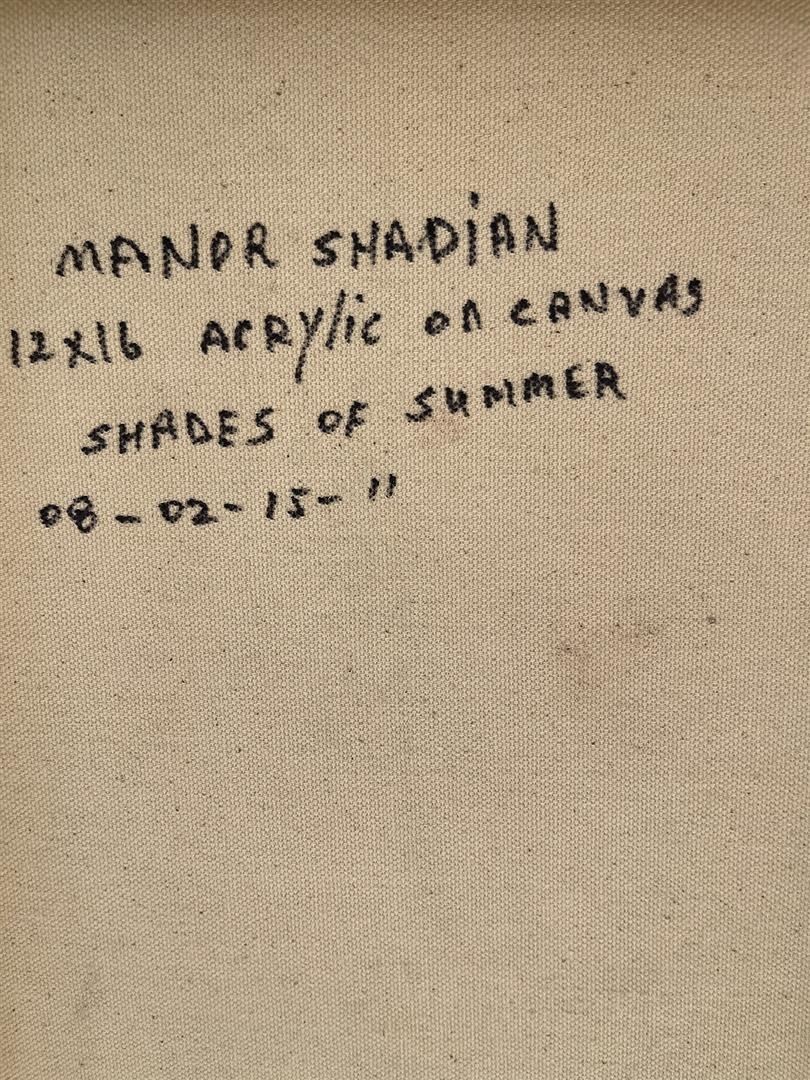 MANOR SHADiAN
12X16 ACRYlic on CANVAS
SHADES OF SUMMER
08-02-15-"